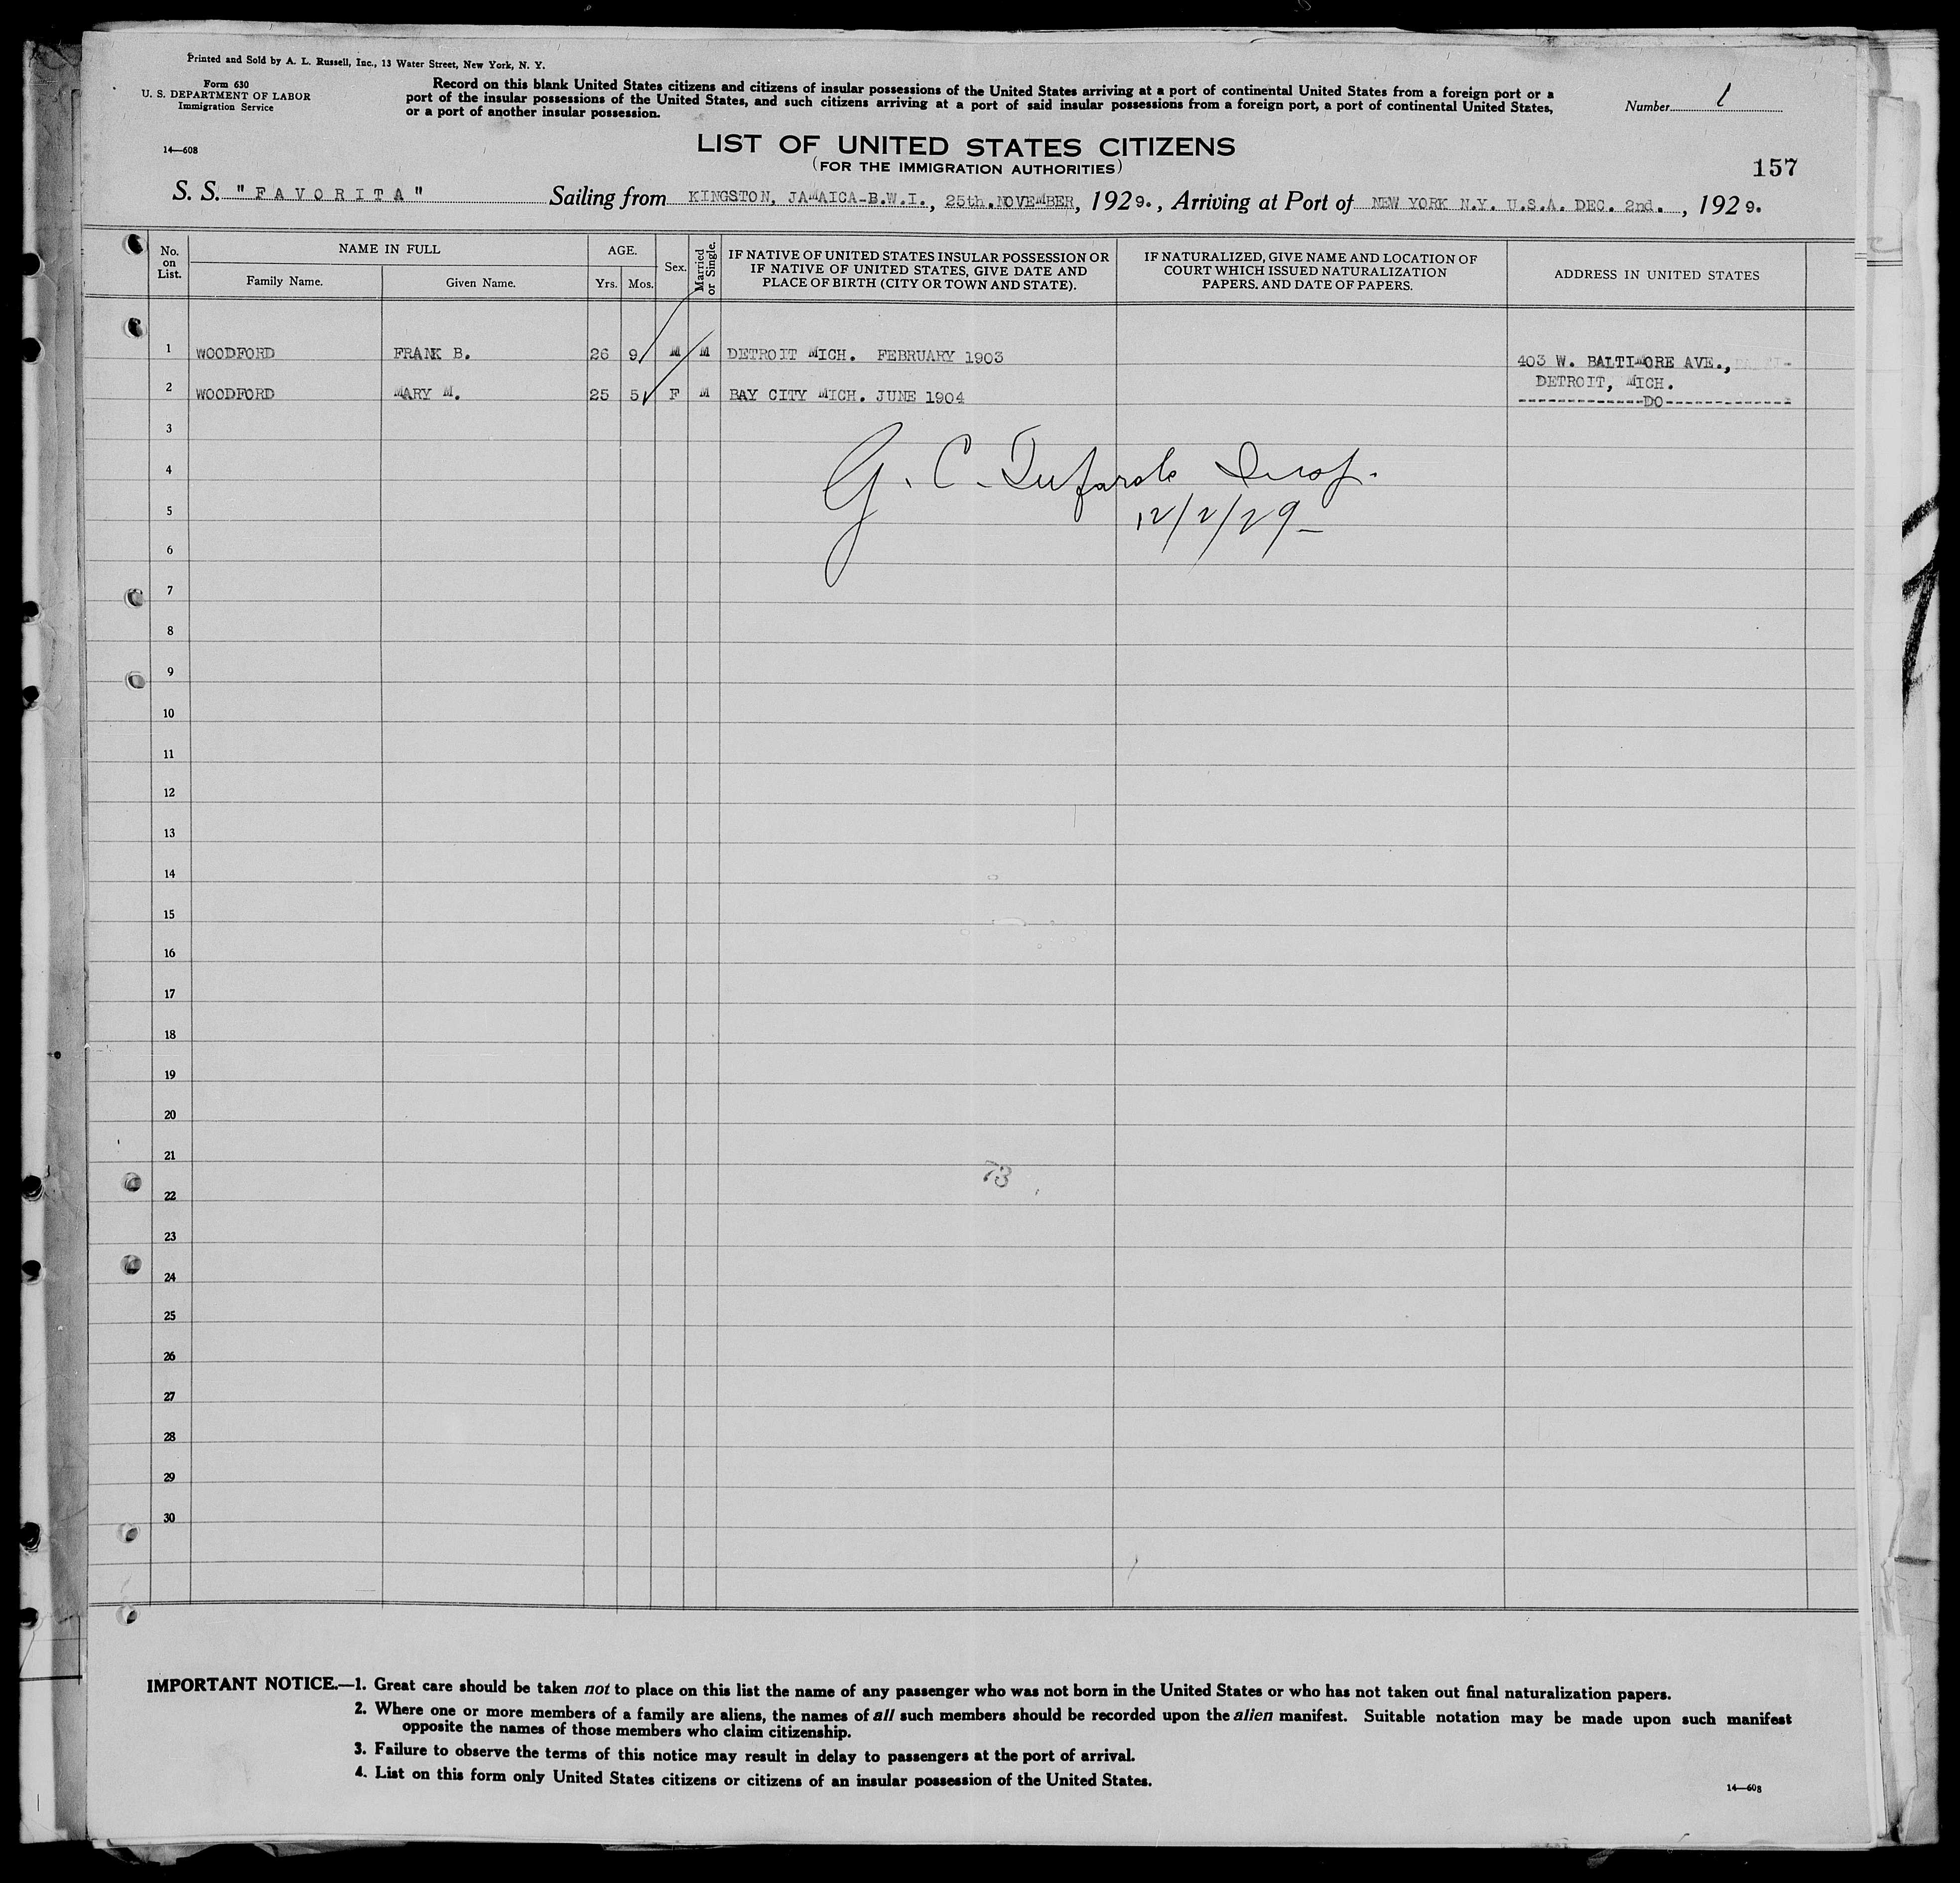 Printed and Sold by A. L. Russell, Inc., 13 Water Street, New York, N. Y.
Form 630
U. S. DEPARTMENT OF LABOR
Immigration Service
14—608
Record on this blank United States citizens and citizens of insular possessions of the United States arriving at a port of continental United States from a foreign port or a
port of the insular possessions of the United States, and such citizens arriving at a port of said insular possessions from a foreign port, a port of continental United States,
or a port of another insular possession.
Number 1
LIST OF UNITED STATES CITIZENS
(FOR THE IMMIGRATION AUTHORITIES)
157
S. S. "FAVORITA" Sailing from KINGSTON, JAMAICA-B.W.I., 25th.NOVEMBER, 1929., Arriving at Port of NEW YORK N.Y. U.S.A. DEC. 2nd., 1929.
No. on List.
NAME IN FULL
Family Name. Given Name.
AGE.
Yrs. Mos.
Sex.
Married or Single.
IF NATIVE OF UNITED STATES INSULAR POSSESSION OR
IF NATIVE OF UNITED STATES, GIVE DATE AND
PLACE OF BIRTH (CITY OR TOWN AND STATE).
IF NATURALIZED, GIVE NAME AND LOCATION OF
COURT WHICH ISSUED NATURALIZATION
PAPERS. AND DATE OF PAPERS.
ADDRESS IN UNITED STATES
1 WOODFORD FRANK B. 26 9 M M DETROIT MICH. FEBRUARY 1903 403 W. BALTIMORE AVE.,
DETROIT, MICH.
2 WOODFORD MARY M. 25 5 F M BAY CITY MICH. JUNE 1904 -------------DO-------------
3
4
G. C. Insp.
5
12/2/29
6
7
8
9
10
11
12
13
14
15
16
17
18
19
20
21
73
22
23
24
25
26
27
28
29
30
IMPORTANT NOTICE.—1. Great care should be taken not to place on this list the name of any passenger who was not born in the United States or who has not taken out final naturalization papers.
2. Where one or more members of a family are aliens, the names of all such members should be recorded upon the alien manifest. Suitable notation may be made upon such manifest
opposite the names of those members who claim citizenship.
3. Failure to observe the terms of this notice may result in delay to passengers at the port of arrival.
4. List on this form only United States citizens or citizens of an insular possession of the United States.
14—608